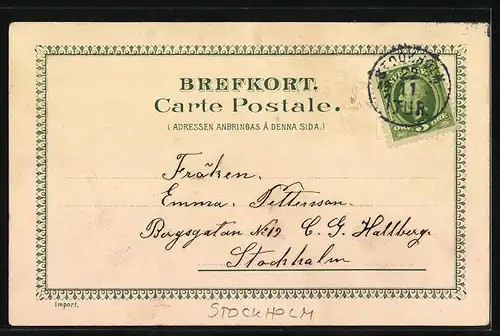 BREFKORT.
Carte Postale.
(ADRESSEN ANBRINGAS Å DENNA SIDA.)
STOCKHOLM
11
TUR
5 ÖRE
Fröken.
Emma. Pettersson.
Bergsgatan No 12 C. G. Hallberg.
Stockholm
Import.
STOCKHOLM